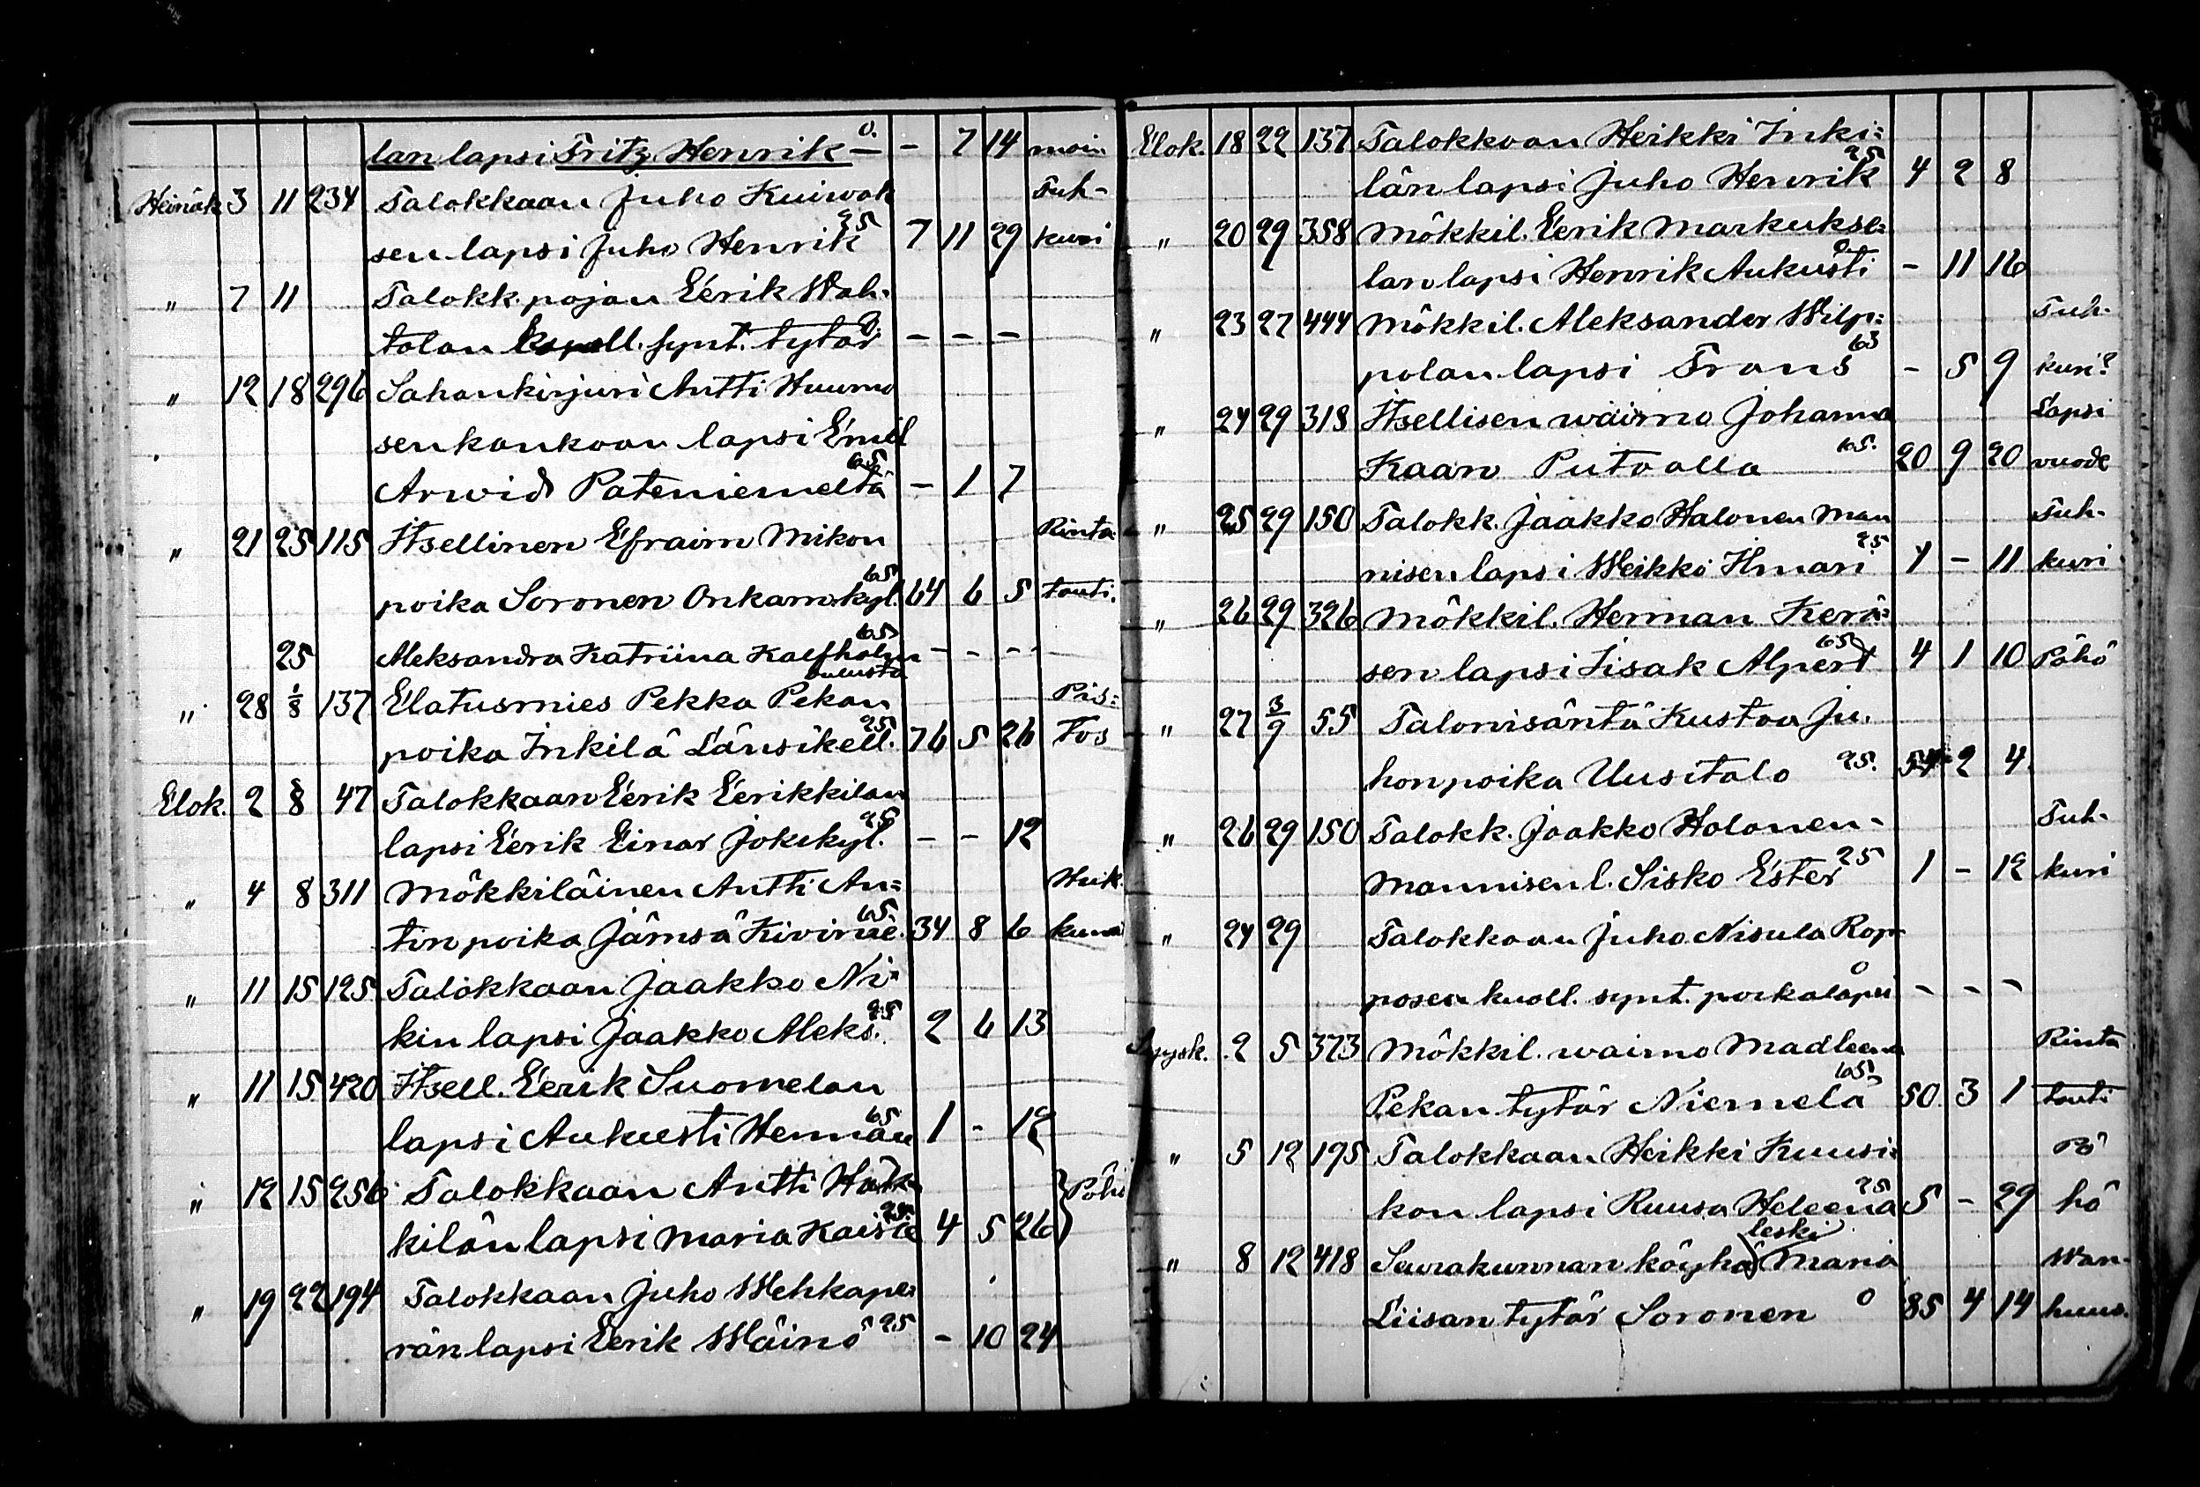 lan lapsi Fritz Henrik 0. - 7 14
Heinäk 3 11 234 Talokkaan Juho Kuiwak Tuh-
sen lapsi Juho Henrik 25 7 11 29 kuri
" 7 11 Talokk. pojan Eerik Wah-
tolan kuoll. synt. tytär 0. - - -
" 12 18 296 Sahankirjuri Antti Huumo
senkankaan lapsi Emil
Arwid Pateniemeltä 65 - 1 7
" 21 25 115 Itsellinen Efraim Mikon Rinta
poika Soronen Onkamokyl. 65 64 6 5 tauti.
25 Aleksandra Katriina Kalfholm 65 - - -
Oulusta
" 28 1/8 137 Elatusmies Pekka Pekan
poika Inkilä Länsikell. 25 76 5 26
Elok. 2 8 47 Talokkaan Eerik Eerikkilan
lapsi Eerik Einar Jokikyl. 25 - - 12
" 4 8 311 Mökkiläinen Antti An= Huk-
tinpoika Jämsä Kivinie. 65 34 8 6
" 11 15 125 Talokkaan Jaakko Ni=
kin lapsi Jaakko Aleks. 25 2 6 13
" 11 15 420 Itsell. Eerik Suomelan
lapsi Aukusti Herman 65 1 - 12
" 12 15 256 Talokkaan Antti
kilän lapsi Maria 25. 4 5 26
" 19 22 194 Talokkaan Juho Wehkape=
rän lapsi Eerik Wäinö 25 - 10 24
Elok. 18 22 137 Talokkaan Heikki Inki=
län lapsi Juho Henrik 25 4 2 8
" 20 29 358 Mökkil. Eerik Markukse=
lan lapsi Henrik Aukusti 0 - 11 16
" 23 27 444 Mökkil. Aleksander Wilp= Tuh-
polan lapsi Frans 63 - 5 9 kuri?
" 24 29 318 Itsellisen waimo Johanna Lapsi
Kaan Putaalla 65. 20 9 20 vuode
" 25 29 150 Talokk. Jaakko Halonen Man Tuh-
nisen lapsi Weikko Ilmari 25 1 - 11 kuri
" 26 29 326 Mökkil. Herman Kerä=
sen lapsi Iisak Alpert 65 4 1 10 Pöhö
" 27 3/9 55 Talonisäntä Kustaa Ju-
honpoika Uusitalo 25. 54 2 4.
" 26 29 150 Talokk. Jaakko Halonen- Tuh-
Mannisen l. Sisko Ester 25 1 - 12 kuri
" 24 29 Talokkaan Juho Nisula Rop-
posen kuoll. synt. poikalapsi 0 - - -
Syysk. 2 5 323 Mökkil. waimo Madleena Rinta
Pekan tytär Niemelä 65 50 3 1 tauti
" 5 12 195 Talokkaan Heikki Kuusi= Pö
kon lapsi Ruusa Heleena 25 5 - 29 hö
leski
" 8 12 418 Seurakunnan köyhä Maria Wan-
Liisan tytär Soronen 0 85 4 14 huus.